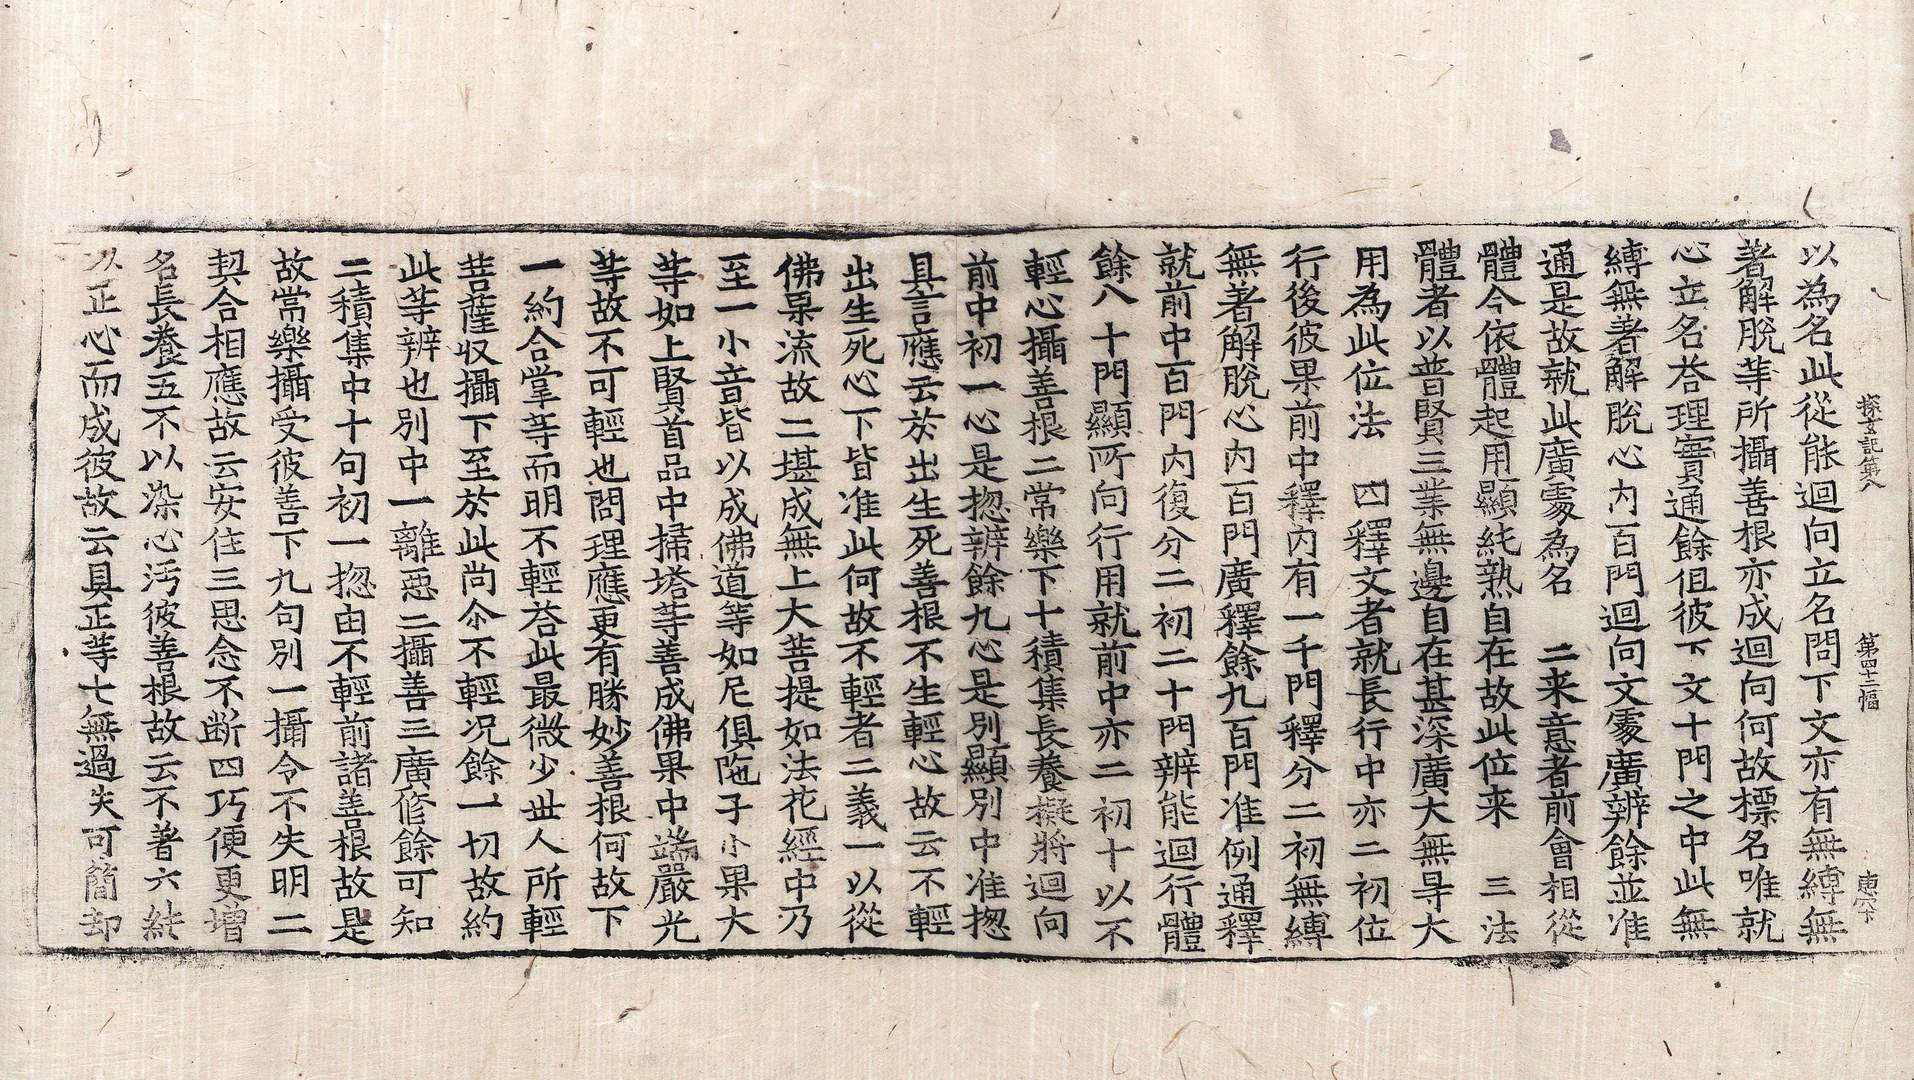 探玄記第八　第四十二幅　惠下
以為名此從能迴向立名問下文亦有無縛無
著解脫等所攝善根亦成迴向何故標名唯就
心立名荅理實通餘但彼下文十門之中此無
縛無著解脫心內百門迴向文處廣辨餘並准
通是故就此廣處為名　二来意者前會相從
體今依體起用顯純熟自在故此位来　三法
體者以普賢三業無邊自在甚深廣大無㝵大
用為此位法　四釋文者就長行中亦二初位
行後彼果前中釋內有一千門釋分二初無縛
無著解脫心內百門廣釋餘九百門准例通釋
就前中百門內復分二初二十門辨能迴行體
餘八十門顯所向行用就前中亦二初十以不
輕心攝善根二常樂下十積集長養擬將迴向
前中初一心是揔辨餘九心是別顯別中准揔
具言應云於出生死善根不生輕心故云不輕
出生死心下皆准此何故不輕者二義一以從
佛果流故二堪成無上大菩提如法花經中乃
至一小音皆以成佛道等如尼俱陁子小果大
等如上賢首品中掃塔等善成佛果中端嚴光
等故不可輕也問理應更有勝妙善根何故下
一約合掌等而明不輕荅此最微少世人所輕
菩薩収攝下至於此尚尒不輕况餘一切故約
此等辨也別中一離惡二攝善三廣修餘可知
二積集中十句初一揔由不輕前諸善根故是
故常樂攝受彼善下九句別一攝令不失明二
契合相應故云安住三思念不断四巧便更增
名長養五不以染心汚彼善根故云不著六純
以正心而成彼故云具正等七無過失可簡却